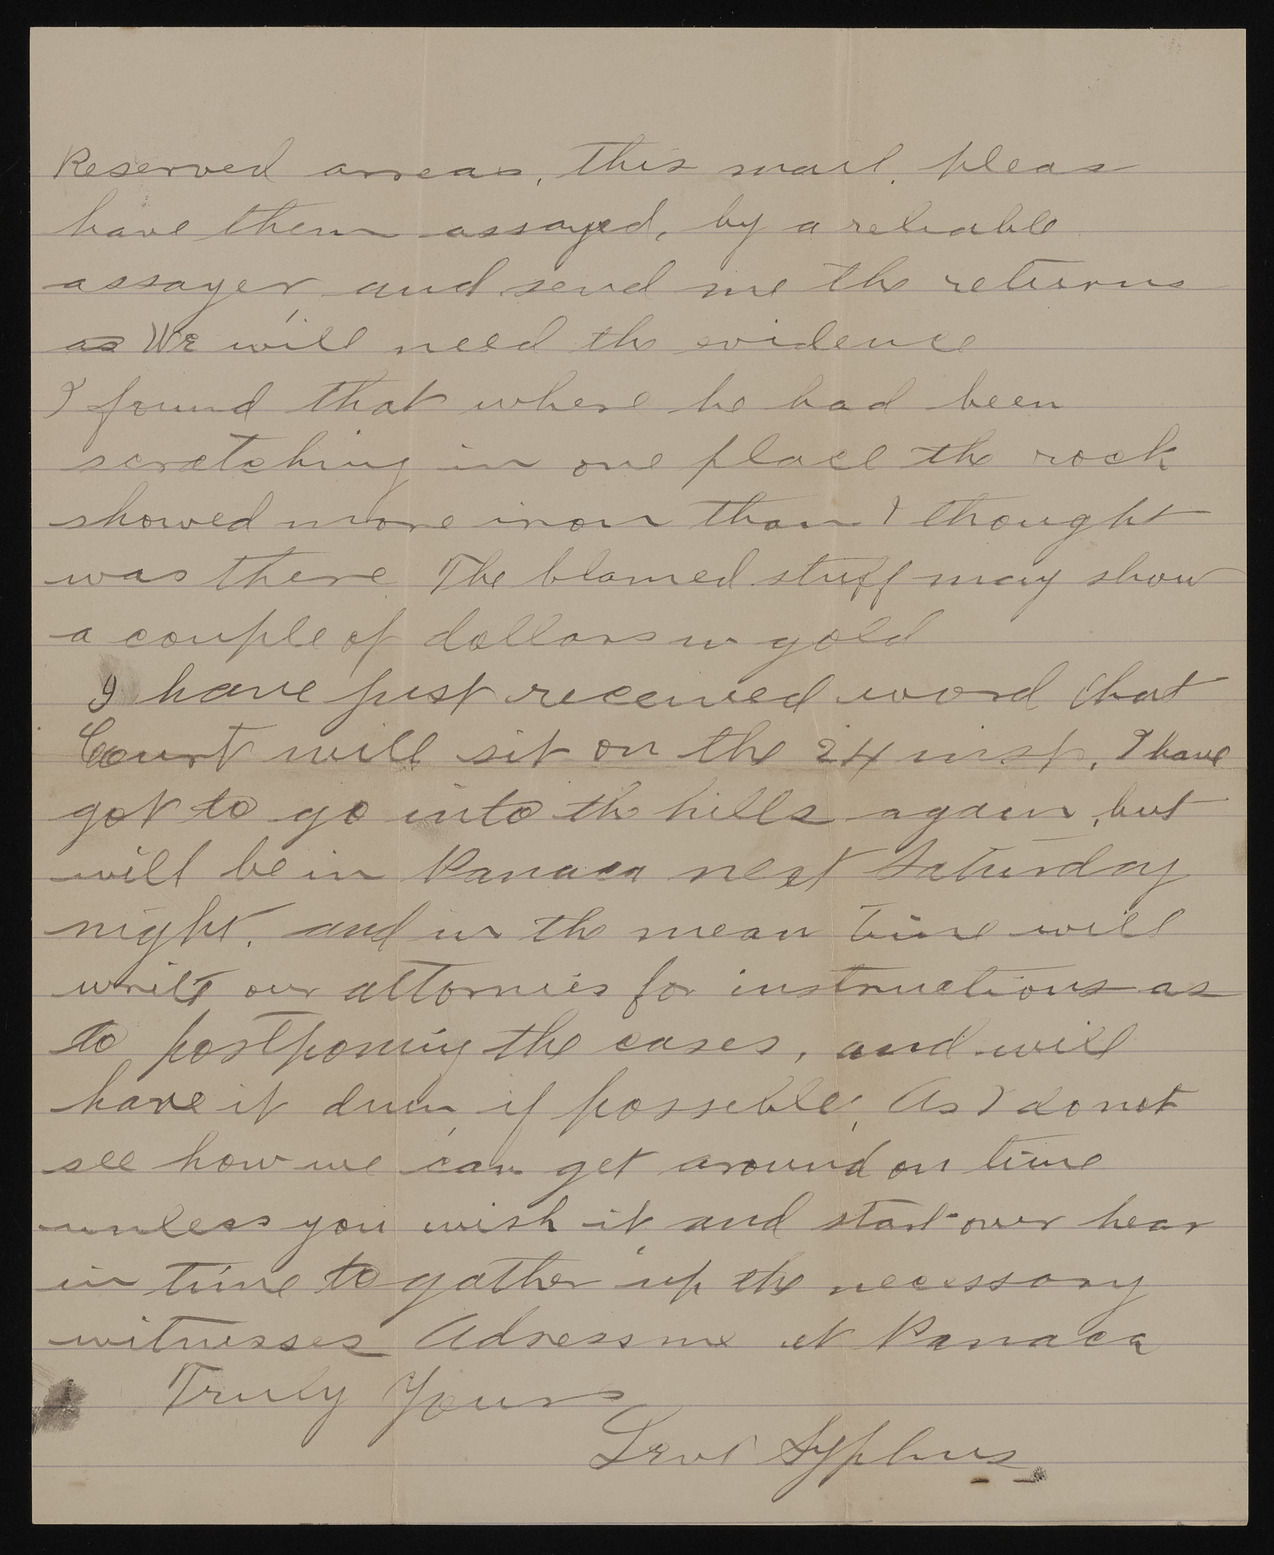 Reserved arreas, this mail, pleas
have them assayed, by a reliable
assayer, and send me the returns
as We will need the evidence
I found that where he had been
scratching in one place the rock
showed more iron than I thought
was there The blamed stuff may show
a couple of dollars in gold
I have just received word that
Court will sit on the 24 inst, I have
got to go into the hills again, but
will be in Panaca next Saturday
night, and in the mean time will
write our attornies for instructions as
to postponing the cases, and will
have it dun, if possible, As I do not
see how we can get around on time
unless you wish it and start over hear
in time to gather up the necessary
witnesses Adress me at Panaca
Truly Yours
Levi Syphus